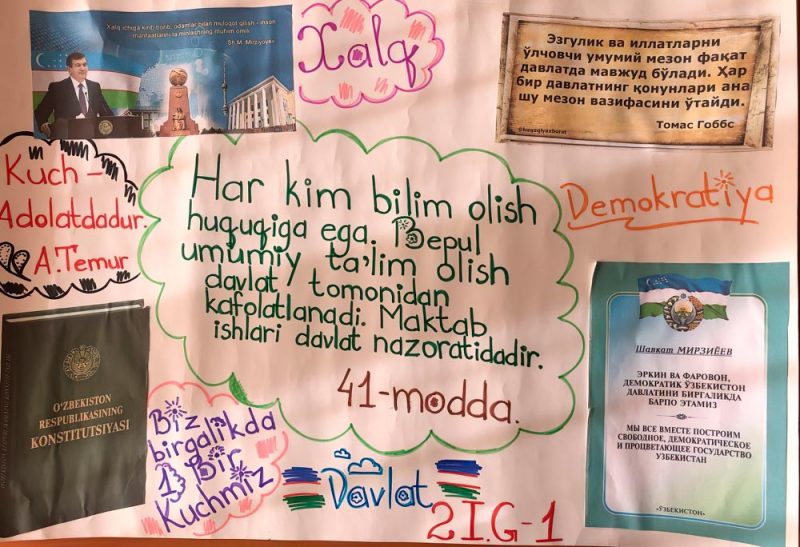 Xalq ichiga kirib borib, odamlar bilan muloqot qilish - inson
manfaatlarini ta'minlashning muhim omili.
Sh.M. Mirziyoyev
Xalq
Эзгулик ва иллатларни
ўлчовчи умумий мезон фақат
давлатда мавжуд бўлади. Ҳар
бир давлатнинг қонунлари ана
шу мезон вазифасини ўтайди.
Томас Гоббс
@huquqiyaxborot
Kuch -
Adolatdadur.
A.Temur
Har kim bilim olish
huquqiga ega. Bepul
umumiy ta'lim olish
davlat tomonidan
kafolatlanadi. Maktab
ishlari davlat nazoratidadir.
41-modda.
Demokratiya
O'ZBEKISTON
RESPUBLIKASINING
KONSTITUTSIYASI
Шавкат МИРЗИЁЕВ
ЭРКИН ВА ФАРОВОН,
ДЕМОКРАТИК ЎЗБЕКИСТОН
ДАВЛАТИНИ БИРГАЛИКДА
БАРПО ЭТАМИЗ
МЫ ВСЕ ВМЕСТЕ ПОСТРОИМ
СВОБОДНОЕ, ДЕМОКРАТИЧЕСКОЕ
И ПРОЦВЕТАЮЩЕЕ ГОСУДАРСТВО
УЗБЕКИСТАН
«ЎЗБЕКИСТОН»
Biz
birgalikda
Bir
Kuchmiz
Davlat
2I.G-1